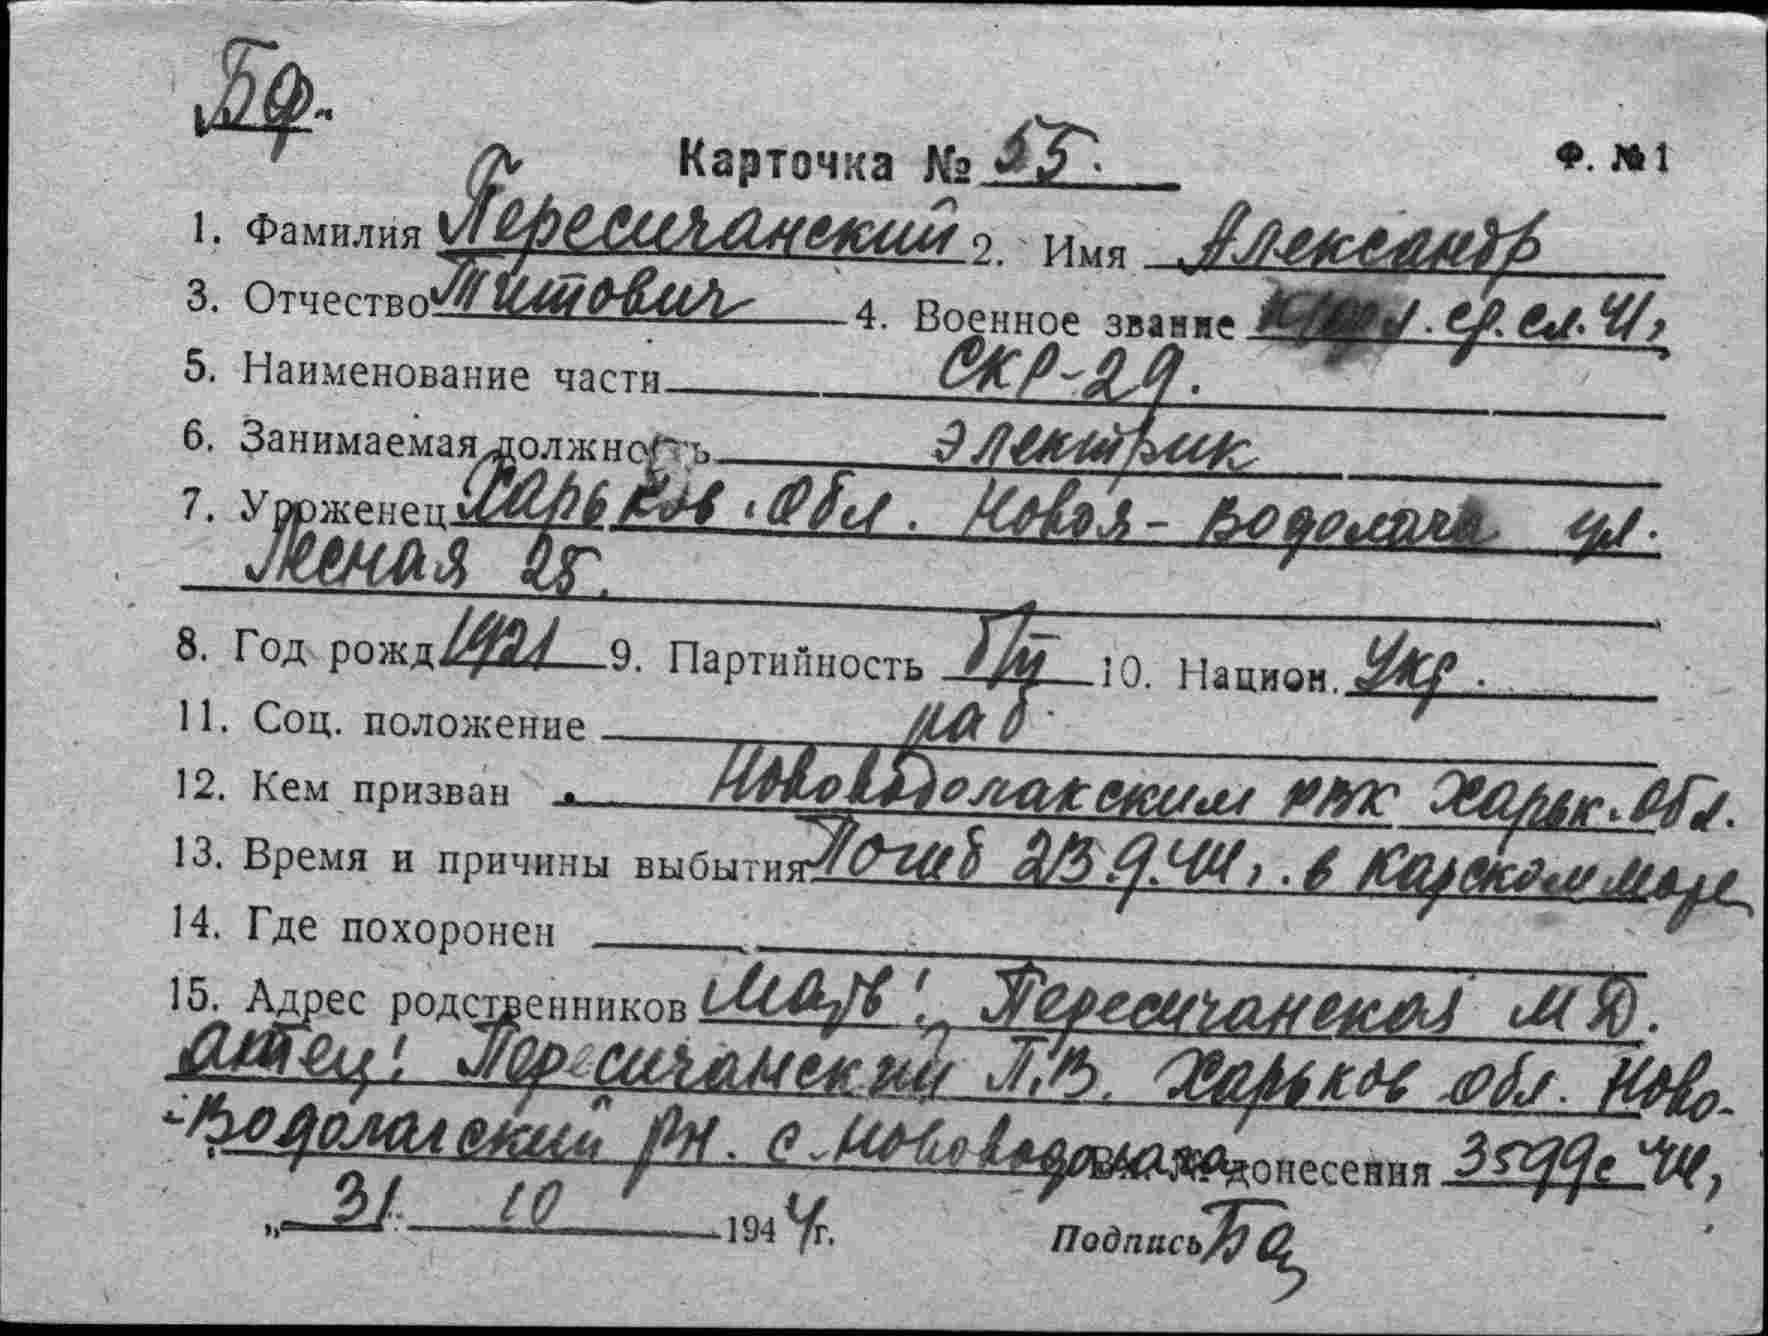 БФ.
Карточка № 55. Ф. №1
1. Фамилия Пересичанский 2. Имя Александр
3. Отчество Титович 4. Военное звание ср. сл. 41г
5. Наименование части СКР-29.
6. Занимаемая должность электрик
7. Уроженец Харьков. Обл. Новая-Водолага ул.
Лесная 25.
8. Год рожд 1921 9. Партийность б/п 10. Национ. Укр.
11. Соц. положение раб.
12. Кем призван Нововодолакским РВК Харьк. Обл.
13. Время и причины выбытия Погиб 23.9.44г. в Карском море
14. Где похоронен
15. Адрес родственников Мать: Пересичанская М Д.
атец: Пересичанский Т.В. Харьков Обл. Ново-
-Водолагский рн. с. Нововодолага донесения 3599с 44г
„ 31 10 1944г. Подпись